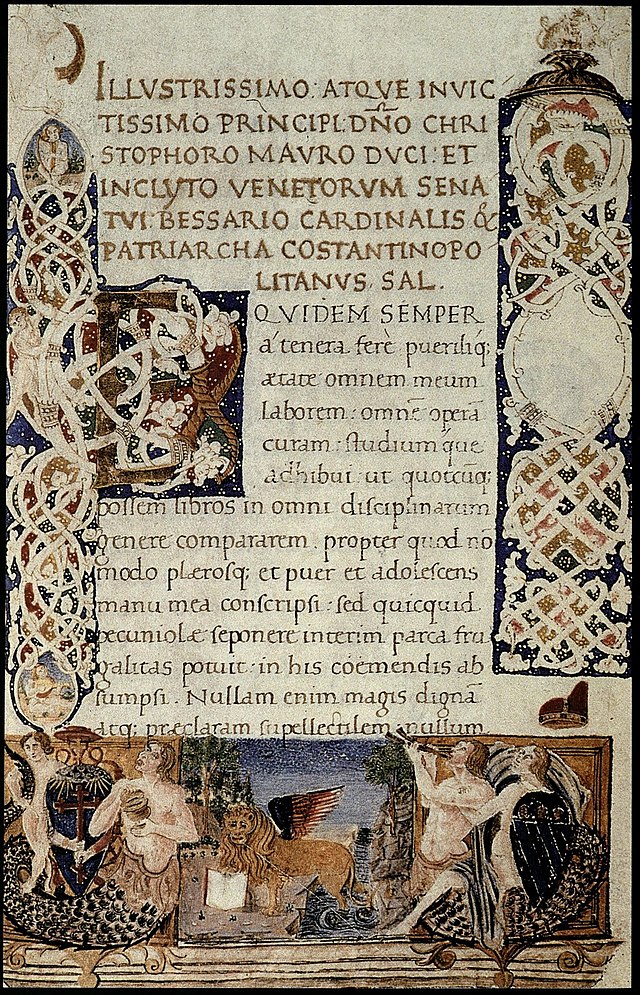 ILLVSTRISSIMO· ATQVE INVIC
TISSIMO PRINCIPI· DN̄O CHRI
STOPHORO MAVRO DVCI· ET
INCLYTO VENETORVM SENA
TVI· BESSARIO CARDINALIS &
PATRIARCHA COSTANTINOPO
LITANVS SAL.
EQVIDEM SEMPER
a tenera fere pueriliq;
ætate omnem meum
laborem· omnē operā
curam· studiumque
adhibui· ut quotcūq;
possem libros in omni disciplinarum
genere compararem. propter quod nō
modo plærosq; et puer et adolescens
manu mea conscripsi· sed quicquid
pecuniolæ seponere interim parca fru
galitas potuit· in his coemendis ab
sumpsi. Nullam enim magis dignā
atq; præclaram supellectilem· nullum